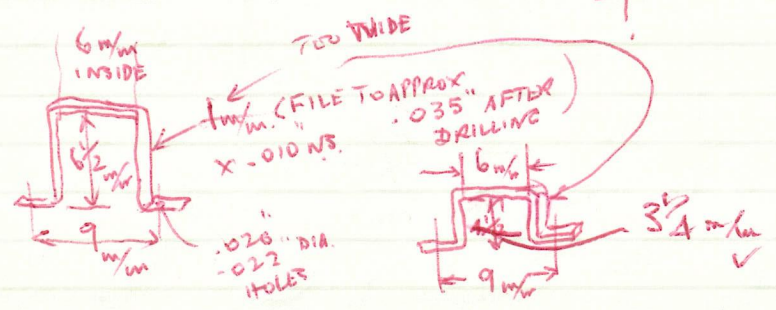 6 m/m
INSIDE
TOO WIDE
1 m/m. (FILE TO APPROX
.035" AFTER
DRILLING)
X .010" NS.
6½
m/m
9
m/m
.020" DIA.
.022
HOLES
6 m/m
3¾ m/m ✓
9 m/m